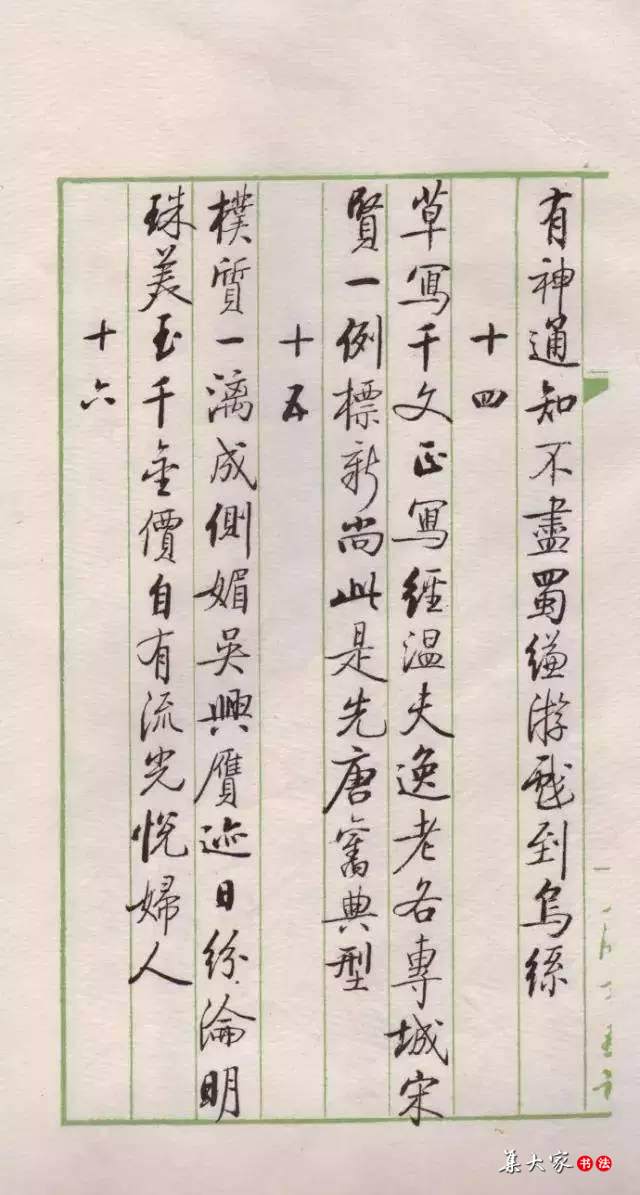 有神通知不盡蜀縑游戲到烏絲
十四
草寫千文正寫經温夫逸老各專城宋
賢一例標新尚此是先唐舊典型
十五
樸質一漓成側媚吳興贗迹日紛淪明
珠美玉千金價自有流光悅婦人
十六
集大家书法